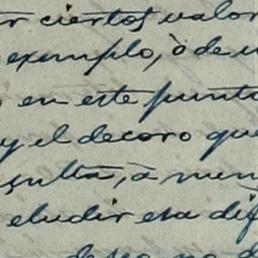 ciertos valor
exemplo, ò de
en este punto
y el decoro que
sulta, à nin
eludir esa dif